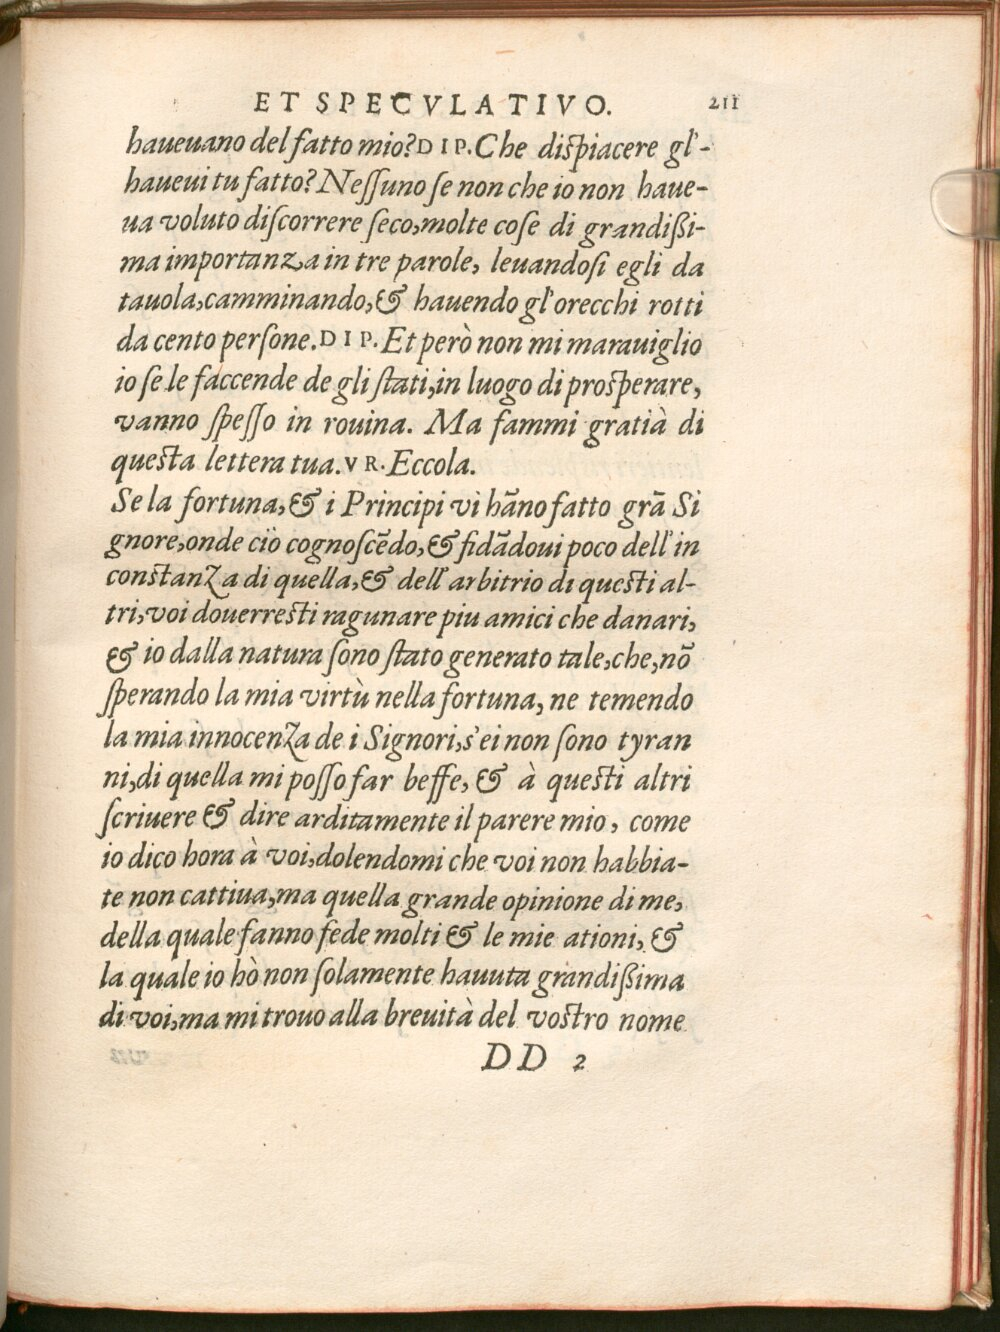 ET SPECVLATIVO. 211
haueuano del fatto mio? DIP. Che dispiacere gl'-
haueui tu fatto? Nessuno se non che io non haue-
ua voluto discorrere seco, molte cose di grandißi-
ma importanza in tre parole, leuandosi egli da
tauola, camminando, & hauendo gl'orecchi rotti
da cento persone. DIP. Et però non mi marauiglio
io se le faccende de gli stati, in luogo di prosperare,
vanno spesso in rouina. Ma fammi gratià di
questa lettera tua. VR. Eccola.
Se la fortuna, & i Principi vi hãno fatto grã Si
gnore, onde ciò cognoscẽdo, & fidãdoui poco dell'in
constanza di quella, & dell'arbitrio di questi al-
tri, voi douerresti ragunare piu amici che danari,
& io dalla natura sono stato generato tale, che, nõ
sperando la mia virtù nella fortuna, ne temendo
la mia innocenza de i Signori, s'ei non sono tyran
ni, di quella mi posso far beffe, & à questi altri
scriuere & dire arditamente il parere mio, come
io dico hora à voi, dolendomi che voi non habbia-
te non cattiua, ma quella grande opinione di me,
della quale fanno fede molti & le mie ationi, &
la quale io hò non solamente hauuta grandißima
di voi, ma mi trouo alla breuità del vostro nome
DD 2